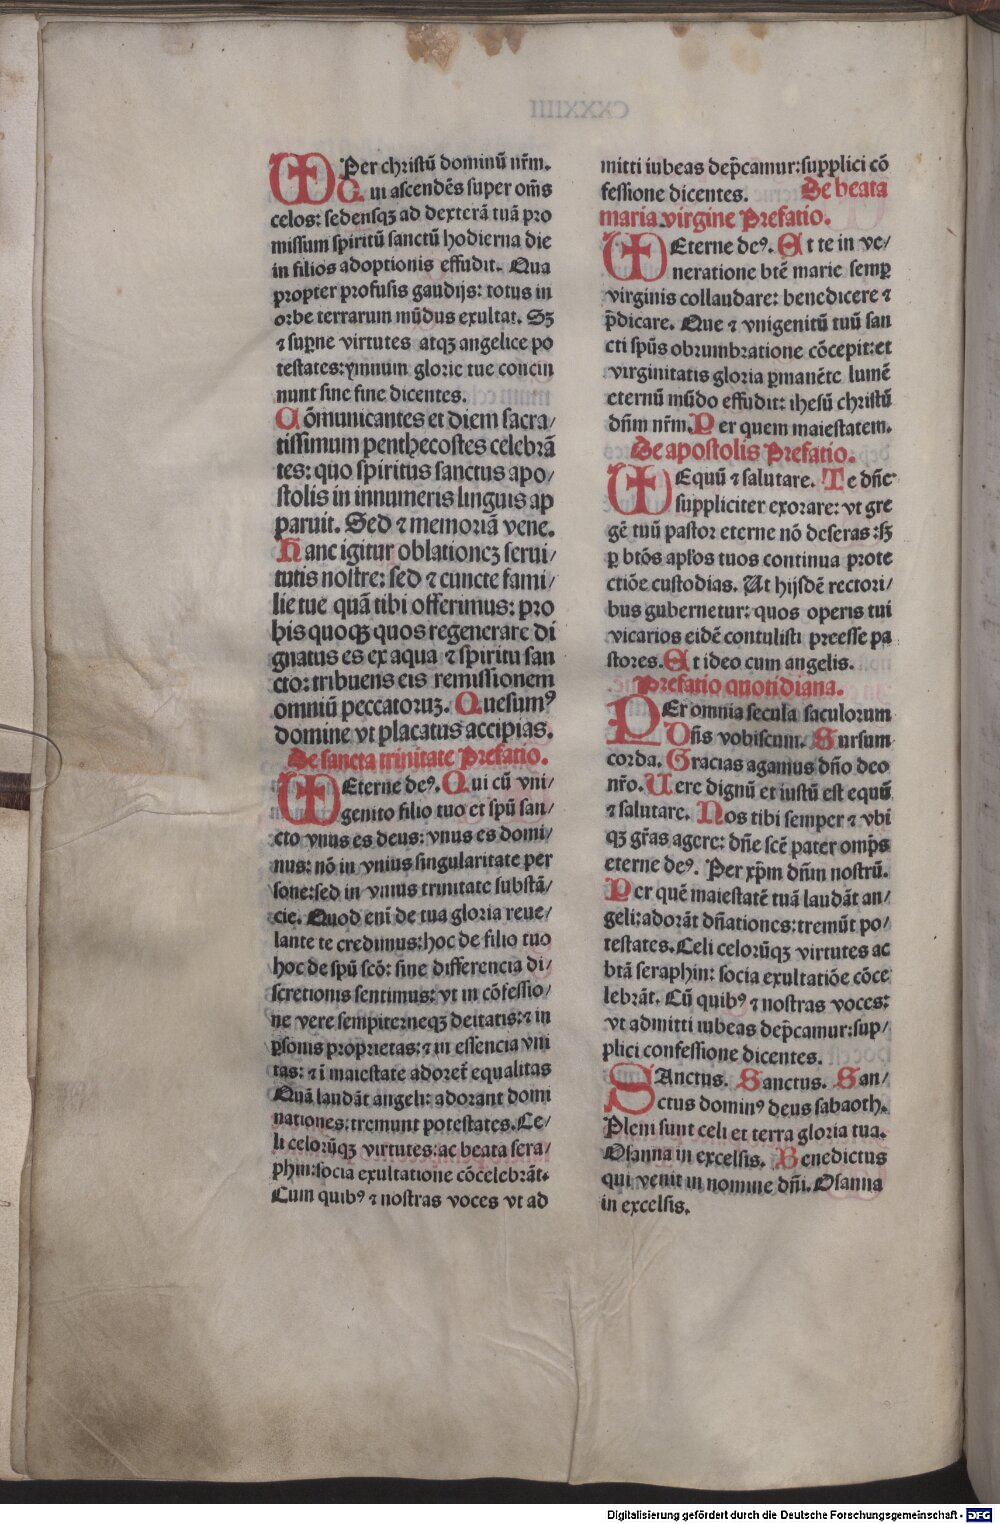 Per christū dominū nr̄m.
Qui ascendēs super om̄s
celos: sedensqꝫ ad dexterā tuā pro
missum spiritū sanctū hodierna die
in filios adoptionis effudit. Qua
propter profusis gaudijs: totus in
orbe terrarum mūdus exultat. Sꝫ
⁊ suꝑne virtutes atqꝫ angelice po
testates: ymnum glorie tue concin
nunt sine fine dicentes.
Cōmunicantes et diem sacra/
tissimum penthecostes celebrā
tes: quo spiritus sanctus apo/
stolis in innumeris linguis ap
paruit. Sed ⁊ memoriā vene.
Hanc igitur oblationeꝫ serui/
tutis nostre: sed ⁊ cuncte fami/
lie tue quā tibi offerimus: pro
his quoqꝫ quos regenerare di
gnatus es ex aqua ⁊ spiritu san
cto: tribuens eis remissionem
omniū peccatoruꝫ. Quesumꝰ
domine vt placatus accipias.
De sancta trinitate Prefatio.
Eterne deꝰ. Qui cū vni/
genito filio tuo et spū san/
cto vnus es deus: vnus es domi/
nus: nō in vnius singularitate per
sone: sed in vnius trinitate substā/
cie. Quod eni̅ de tua gloria reue/
lante te credimus: hoc de filio tuo
hoc de spū scō: sine differencia di/
scretionis sentimus: vt in cōfessio/
ne vere sempiterneqꝫ deitatis: ⁊ in
ꝑsonis proprietas: ⁊ in essencia vni
tas: ⁊ i̅ maiestate adoret̄ equalitas
Quā laudāt angeli: adorant domi
nationes: tremunt potestates. Ce/
li celorūqꝫ virtutes: ac beata sera/
phin: socia exultatione cōcelebrāt.
Cum quibꝰ ⁊ nostras voces vt ad
mitti iubeas dep̄camur: supplici cō
fessione dicentes. De beata
maria virgine Prefatio.
Eterne deꝰ. Et te in ve/
neratione btē marie semꝑ
virginis collaudare: benedicere ⁊
p̄dicare. Que ⁊ vnigenitū tuū san
cti spūs obrumbratione cōcepit: et
virginitatis gloria ꝑmanēte lumē
eternū mūdo effudit: ihesū christū
dn̄m nr̄m. Per quem maiestatem.
De apostolis Prefatio.
Equū ⁊ salutare. Te dn̄e
suppliciter exorare: vt gre
gē tuū pastor eterne nō deseras: sꝫ
ꝑ btōs apl̄os tuos continua prote
ctiōe custodias. Ut hijsdē rectori/
bus gubernetur: quos operis tui
vicarios eidē contulisti preesse pa
stores. Et ideo cum angelis.
Prefatio quotidiana.
PEr omnia secula saculorum
Dn̄s vobiscum. Sursum
corda. Gracias agamus dn̄o deo
nr̄o. Uere dignū et iustū est equū
⁊ salutare. Nos tibi semper ⁊ vbi
qꝫ gr̄as agere: dn̄e scē pater omp̄s
eterne deꝰ. Per xp̄m dn̄m nostrū.
Per quē maiestatē tuā laudāt an/
geli: adorāt dn̄ationes: tremūt po/
testates. Celi celorūqꝫ virtutes ac
btā seraphin: socia exultatiōe cōce
lebrāt. Cū quibꝰ ⁊ nostras voces:
vt admitti iubeas dep̄camur: sup/
plici confessione dicentes.
SAnctus. Sanctus. San/
ctus dominꝰ deus sabaoth.
Pleni sunt celi et terra gloria tua.
Osanna in excelsis. Benedictus
qui venit in nomine dn̄i. Osanna
in excelsis.
Digitalisierung gefördert durch die Deutsche Forschungsgemeinschaft - DFG